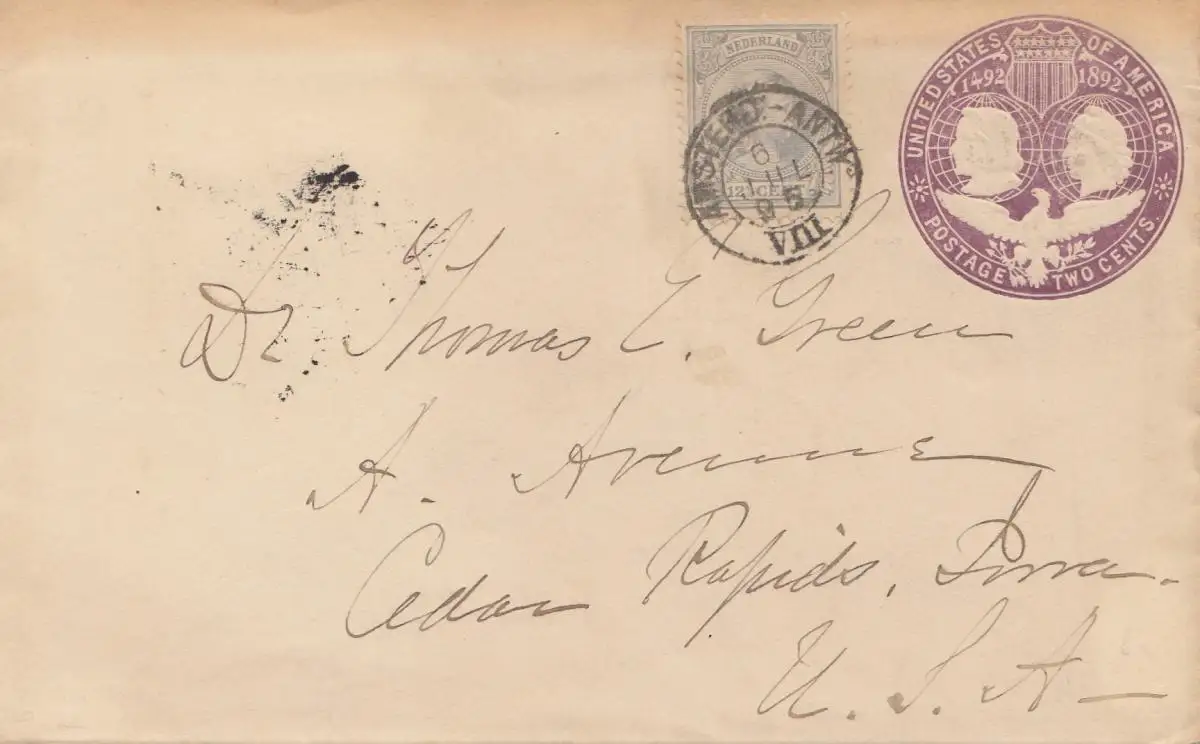 NEDERLAND
12½ CENT
AMSTERD:-ANTW:
6
JUL
95
VIII
UNITED STATES OF AMERICA.
1492 1892
POSTAGE TWO CENTS.
Dr Thomas E. Green
A. Avenue
Cedar Rapids, Iowa.
U. S. A